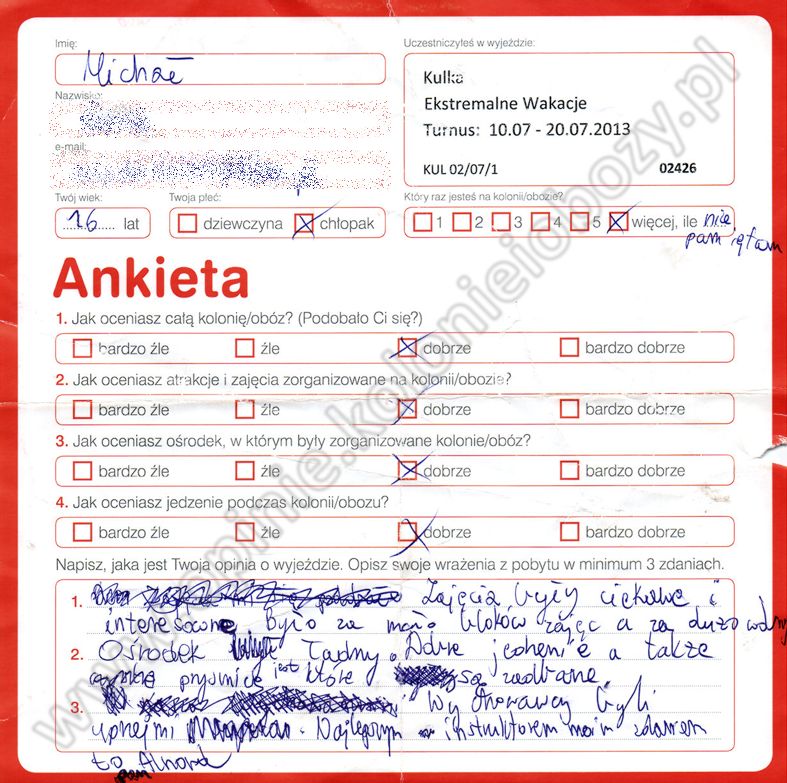 Imię:
Uczestniczyłeś w wyjeździe:
Michał
Kulka
Nazwisko:
Ekstremalne Wakacje
Turnus: 10.07 - 20.07.2013
e-mail:
KUL 02/07/1 02426
Twój wiek: Twoja płeć: Który raz jesteś na kolonii/obozie?
16 lat dziewczyna chłopak 1 2 3 4 5 więcej, ile nie
pamiętam
Ankieta
1. Jak oceniasz całą kolonię/obóz? (Podobało Ci się?)
bardzo źle źle dobrze bardzo dobrze
2. Jak oceniasz atrakcje i zajęcia zorganizowane na kolonii/obozie?
bardzo źle źle dobrze bardzo dobrze
3. Jak oceniasz ośrodek, w którym były zorganizowane kolonie/obóz?
bardzo źle źle dobrze bardzo dobrze
4. Jak oceniasz jedzenie podczas kolonii/obozu?
bardzo źle źle dobrze bardzo dobrze
Napisz, jaka jest Twoja opinia o wyjeździe. Opisz swoje wrażenia z pobytu w minimum 3 zdaniach.
1. Zajęcia były ciekawe i
interesowne było za mało bloków zajęc a za dużo
2. Ośrodek Ładny. Dobre jedzenie a także
prysznice jest które są zadbane
3. Wychowawcy byli
uprzejmi. Najlepszym instruktorem moim zdaniem
to pan
www.opinie.kolonieiobozy.pl